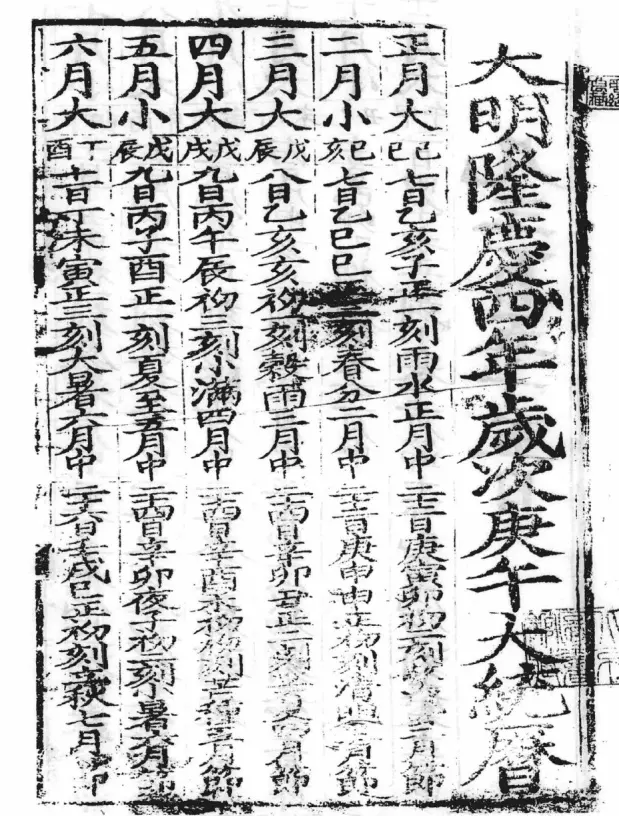 大明隆慶四年歲次庚午大統曆
正月大 己巳 七日乙亥子正一刻雨水正月中 二十二日庚寅卯初一刻驚蟄二月節
二月小 己亥 七日乙巳 刻春分二月中 二十二日庚申申正初刻清明三月節
三月大 戊辰 八日乙亥亥初刻穀雨三月中 二十四日辛卯丑正二刻立夏四月節
四月大 戊戌 九日丙午辰初三刻小滿四月中 二十四日辛酉未初初刻芒種五月節
五月小 戊辰 九日丙子酉正一刻夏至五月中 二十四日辛卯夜子初一刻小暑六月節
六月大 丁酉 十一日丁未寅正三刻大暑六月中 二十六日壬戌巳正初刻立秋七月節